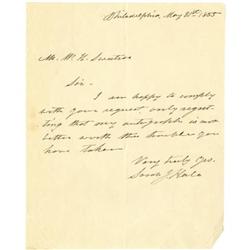 Philadelphia, May 21st, 1855
Mr. W. H.
Sir.
I am happy to comply
with your request only regret-
ting that my autograph is not
better worth the trouble you
have taken
Very truly Yrs.
Sarah J Hale